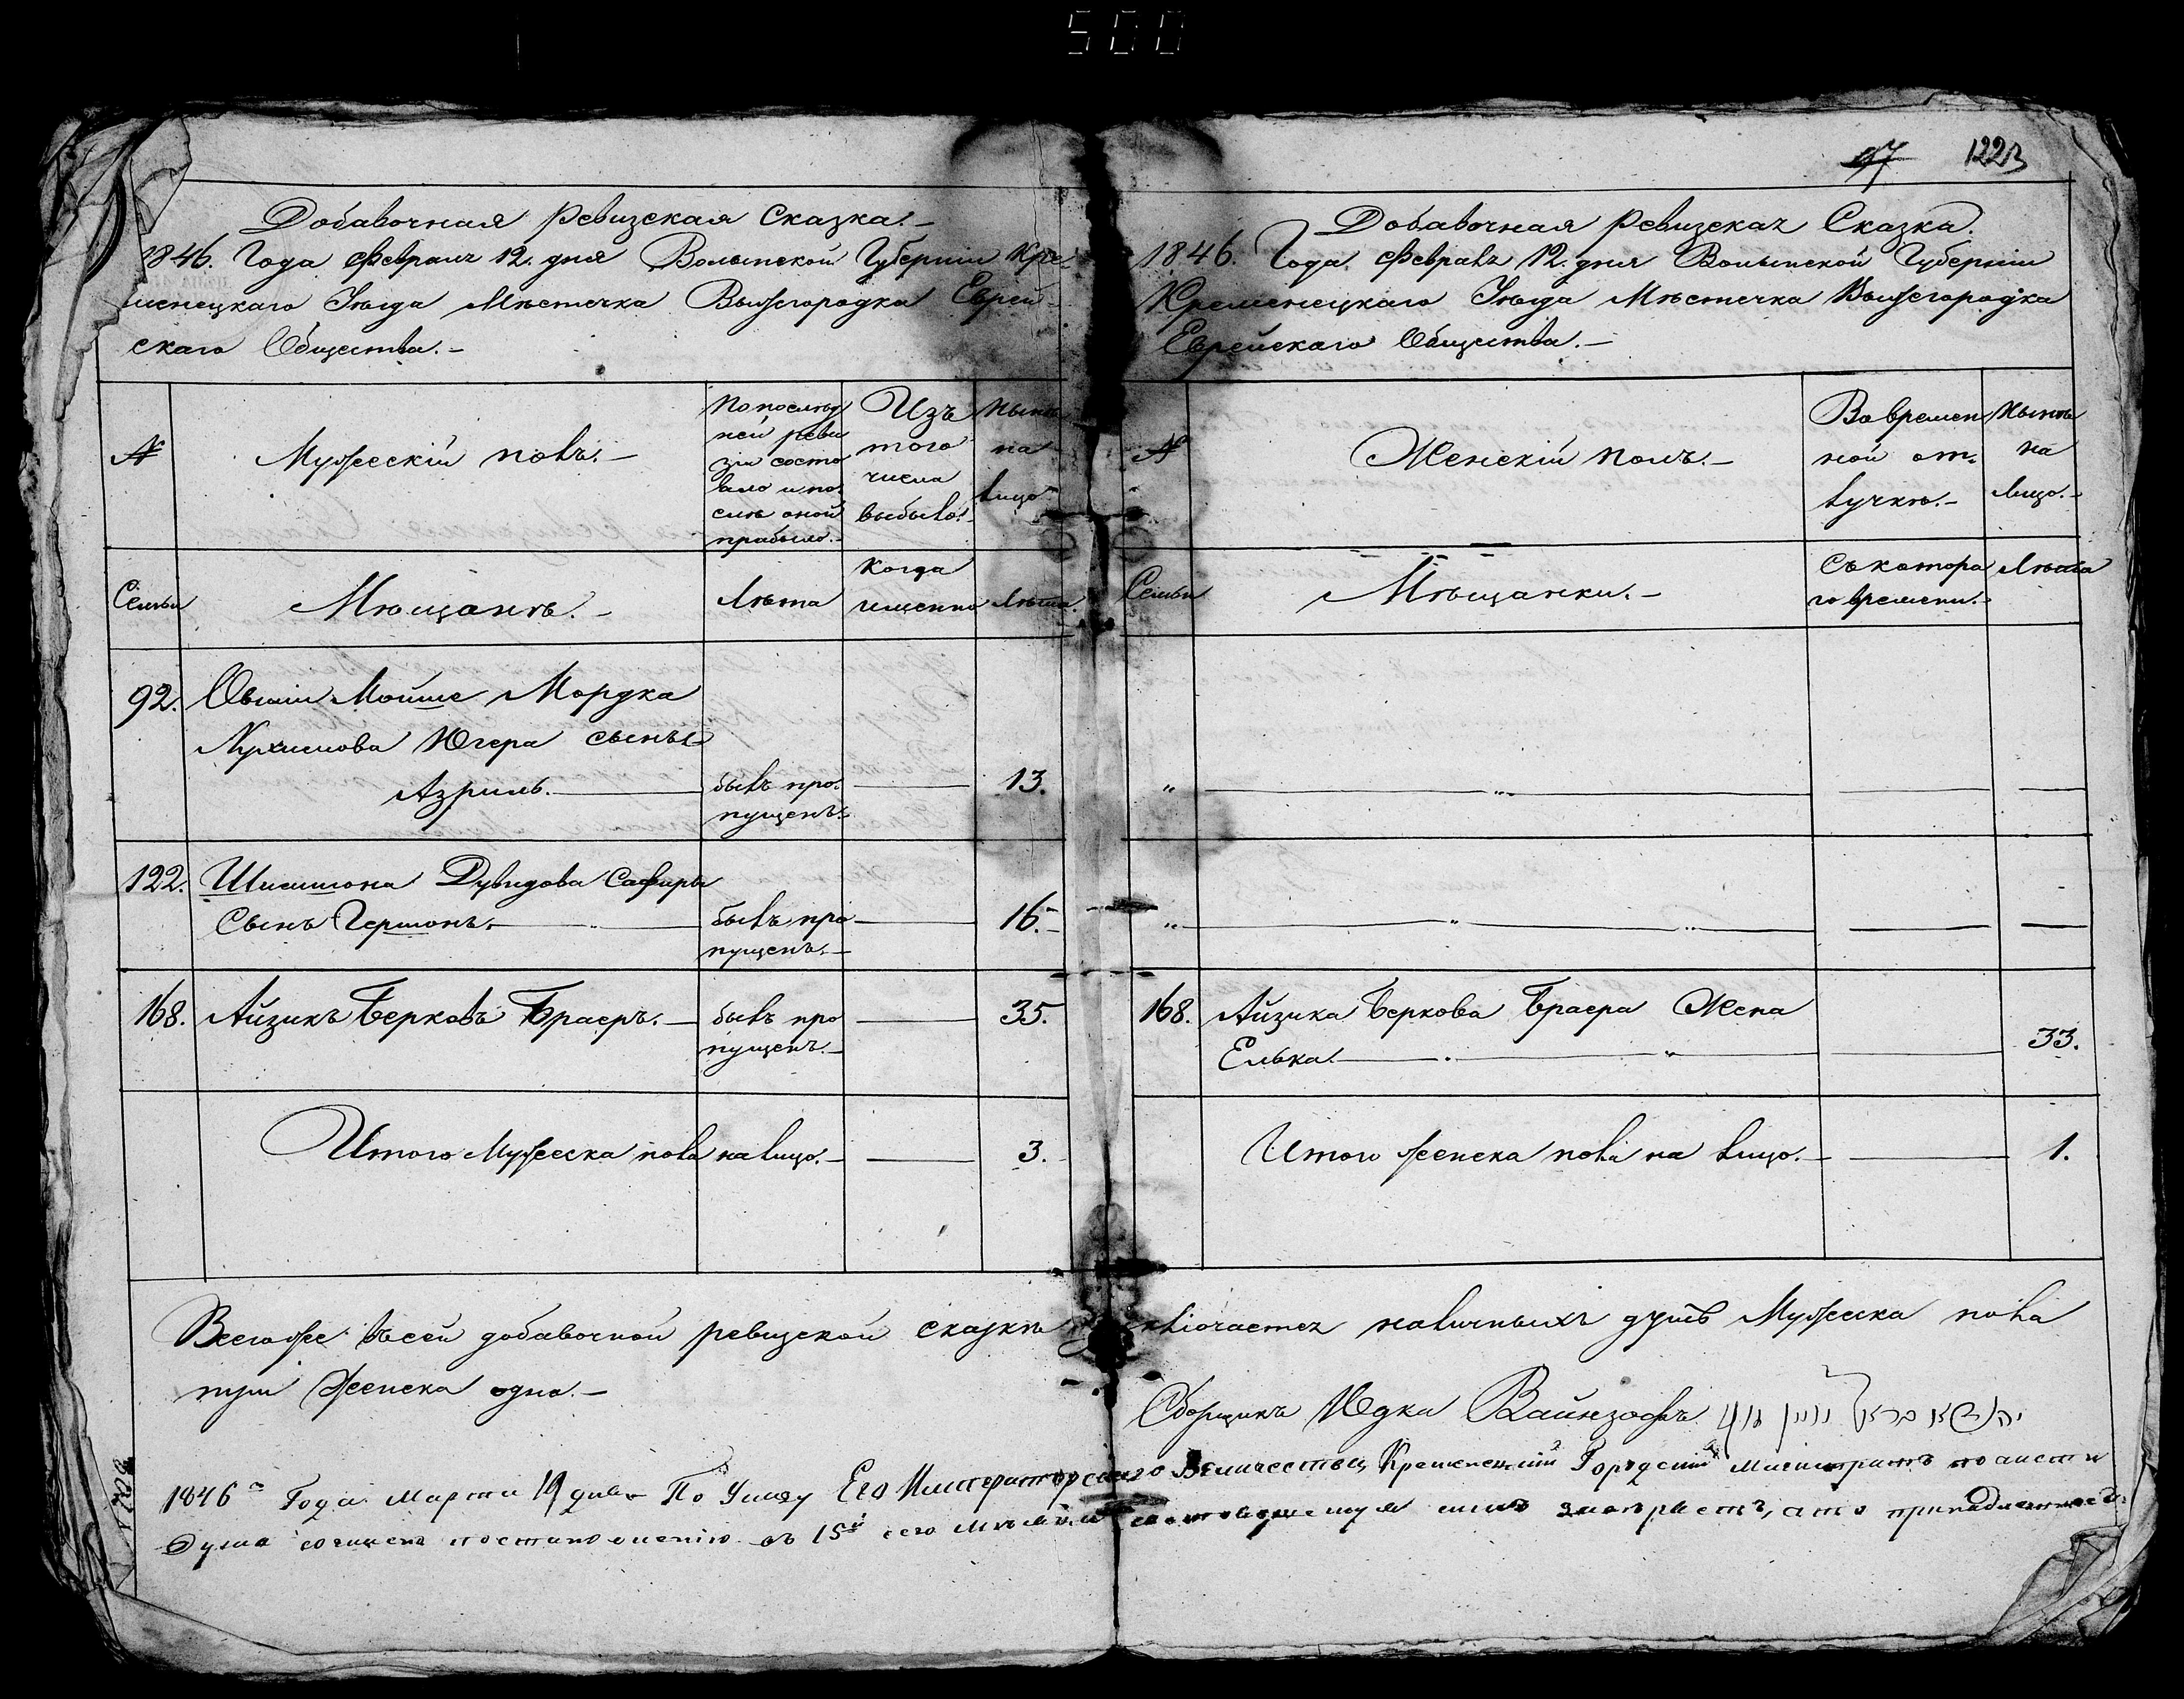 500
1223
Добавочная Ревизская Сказка.
1846. Года Февраля 12. дня Волынской Губерніи Кре-
менецкаго Уѣзда Мѣстечка Вышгородка Еврей-
скаго Общества.
№
Мужескій полъ.
По послѣд
ней реви
зіи состо
яло и по
слѣ оной
прибыло.
Изъ
того
числа
выбыло.
Нынѣ
на
лицо
Семьи
Мѣщанѣ.
Лѣта
Когда
именно
Лѣта.
92.
Мошие Мордка
Югера сынъ
Азриль.
бывъ про-
пущенъ.
13.
122.
Шимшона Дувидова Сафира
Сынъ Гершонъ.
бывъ про
пущенъ.
16.
168.
Айзикъ Берковъ Браеръ.
бывъ про
пущенъ.
35.
Итого Мужеска пола на лицо.
3.
Добавочная Ревизская Сказка.
1846. Года Февраля 12. дня Волынской Губерніи
Кременецкаго Уѣзда Мѣстечка Вышгородка
Еврейскаго Общества.
№
Женскій полъ.
Во времен
ной от-
лучкѣ.
Нынѣ
на
лицо.
Семьи
Мѣщанки.
Съ котора
го времени.
Лѣта
168.
Айзика Беркова Браера Жена
Елька.
33.
Итого женска пола на лицо.
1.
Всего же въ сей добавочной ревизской сказкѣ заключается наличныхъ душъ Мужеска пола
три Женска одна.
Сборщикъ Юдка Вайнзофъ
1846 Года Марта 19 дня По Указу Его Императорскаго Величества Кременецкій Городскій Магистратъ
Дума постановленію въ 15й сего